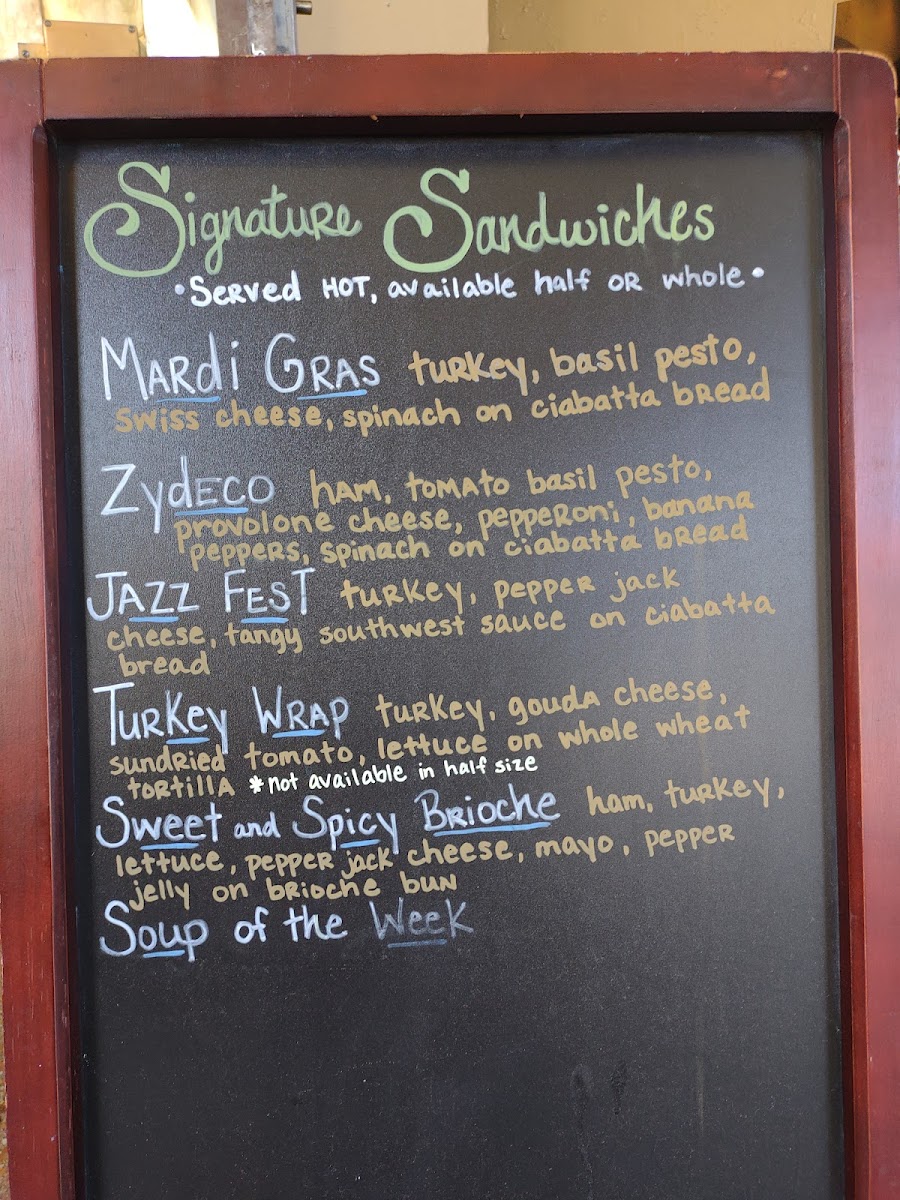 Signature Sandwiches
•Served HOT, available half or whole•
Mardi Gras turkey, basil pesto,
swiss cheese, spinach on ciabatta bread
Zydeco ham, tomato basil pesto,
provolone cheese, pepperoni, banana
peppers, spinach on ciabatta bread
Jazz Fest turkey, pepper jack
cheese, tangy southwest sauce on ciabatta
bread
Turkey Wrap turkey, gouda cheese,
sundried tomato, lettuce on whole wheat
tortilla *not available in half size
Sweet and Spicy Brioche ham, turkey,
lettuce, pepper jack cheese, mayo, pepper
jelly on brioche bun
Soup of the Week